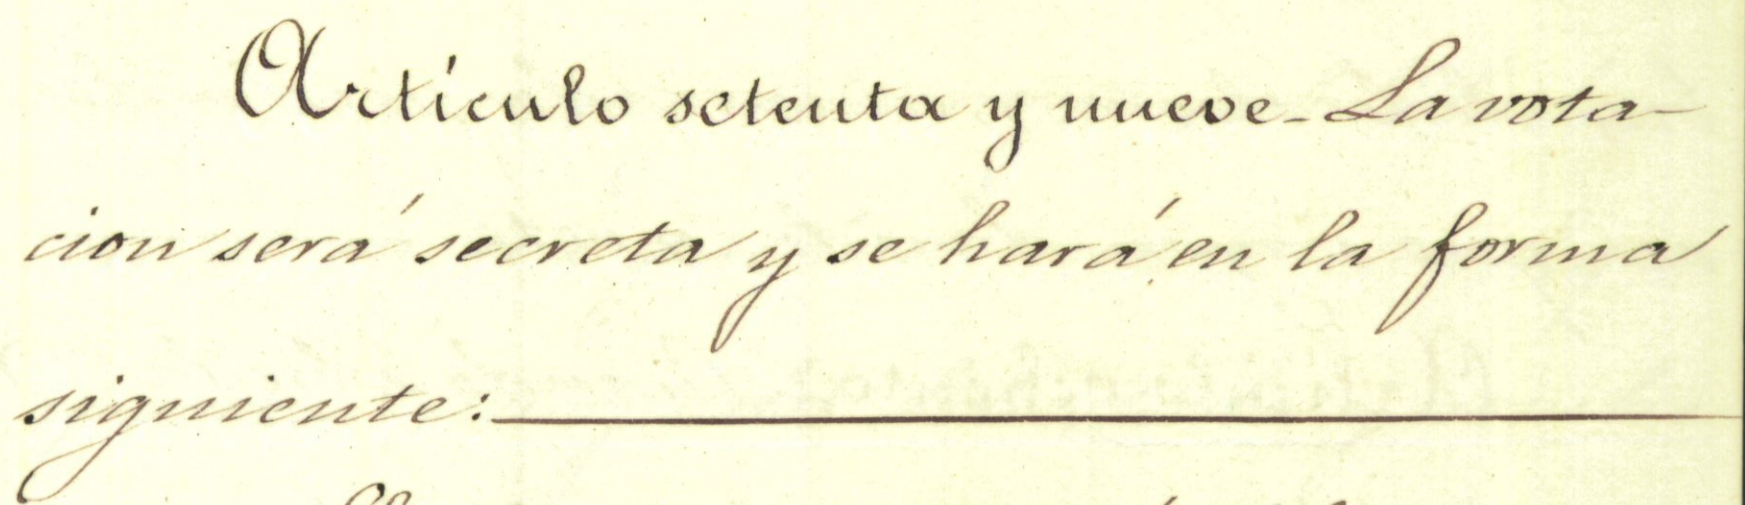 Artículo setenta y nueve - La vota-
cion será secreta y se hará en la forma
siguiente: